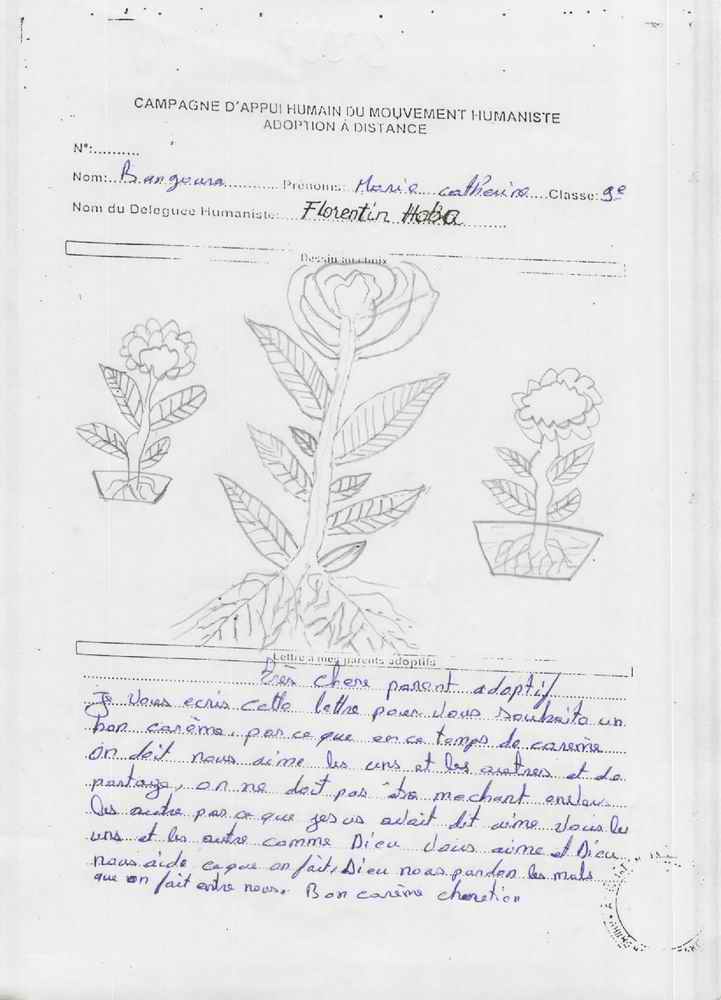 CAMPAGNE D'APPUI HUMAIN DU MOUVEMENT HUMANISTE
ADOPTION À DISTANCE
N°:..........
Nom:...Bangoura............ Prénoms: Marie catherine....Classe: 9e
Nom du Deleguee Humaniste:.....Florentin Haba..........
Dessin au choix
Lettre à mes parents adoptifs
Très chere parent adoptif
Je vous ecris cette lettre pour vous souhaite un
bon carème, par ce que en ce temps de carème
on doit nous aime les uns et les autres et de
partage, on ne doit pas être mechant envers
les autre par ce que jesus avait dit aime vous les
uns et les autre comme Dieu vous aime et Dieu
nous aide ce que on fait, Dieu nous pardon les mals
que on fait entre nous. Bon carème chretion